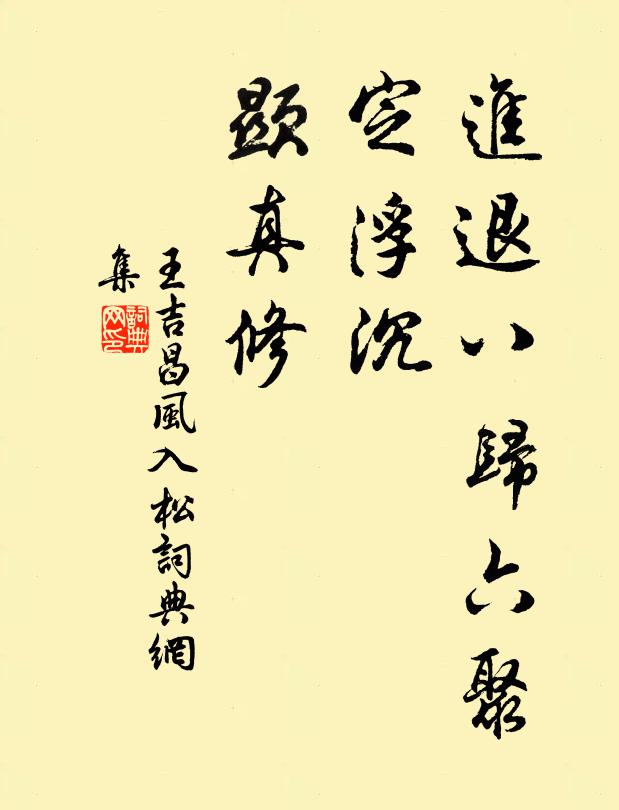 進退八歸六聚
定浮沉
顯真修
王吉昌風入松詞典網
集
詞典
网印